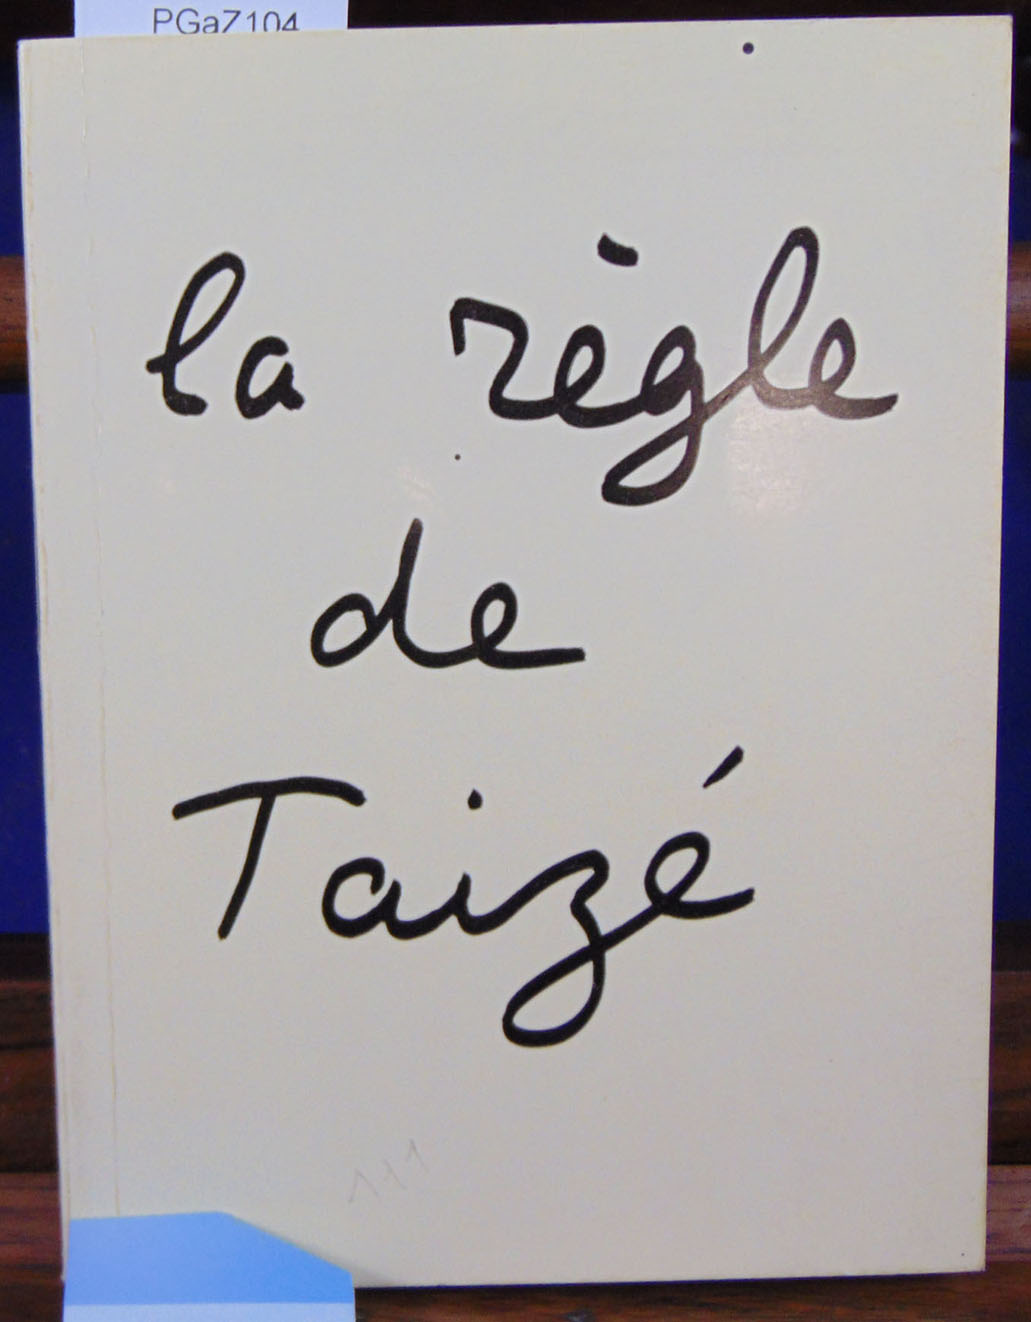 PGaZ104
la règle
de
Taizé
111